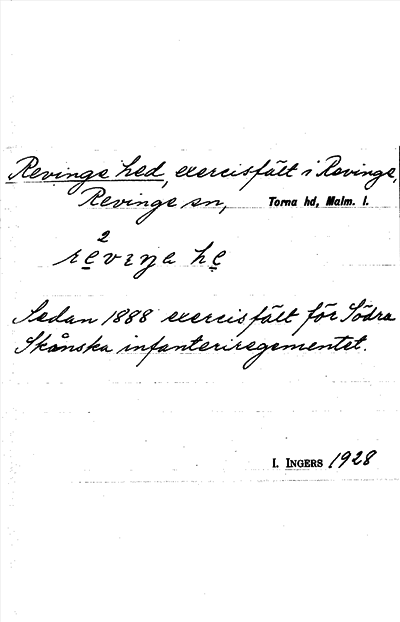 Revinge hed, exercisfält i Revinge,
Revinge sn, Torna hd, Malm. l.
2
re̬vıŋa he̬
Sedan 1888 exercisfält för Södra
Skånska infanteriregementet.
I. INGERS 1928